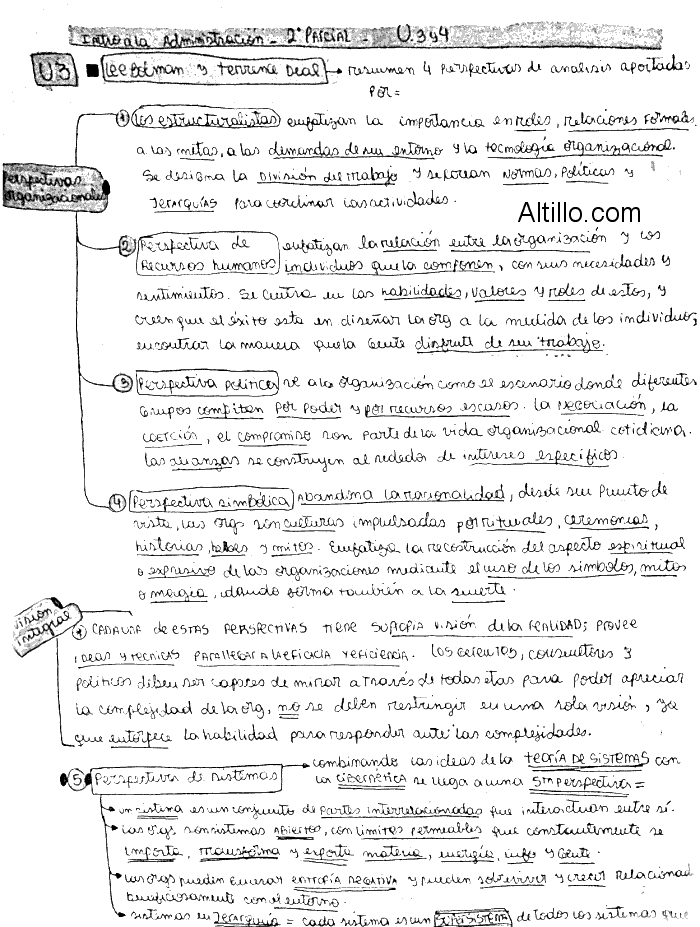 Intro a la Administración - 2° Parcial - U.3 y 4
U3 ■ Lee Bolman y Terrence Deal → resumen 4 perspectivas de analisis aportadas
por =
Perspectivas organizacionales
1 Los estructuralistas enfatizan la importancia en roles, relaciones formales
a las metas, a las demandas de su entorno y la tecnología organizacional.
Se designa la División del trabajo y se crean normas, políticas y
Jerarquías para coordinar las actividades.
Altillo.com
2 Perspectiva de Recursos humanos enfatizan la relación entre la organización y los
individuos que la componen, con sus necesidades y
sentimientos. Se centra en las habilidades, valores y roles de estos, y
creen que el éxito esta en diseñar la org a la medida de los individuos,
encontrar la manera que la gente disfrute de su trabajo.
3 Perspectiva política ve a la organización como el escenario donde diferentes
grupos compiten por poder y por recursos escasos. La negociación, la
coerción, el compromiso son parte de la vida organizacional cotidiana.
Las alianzas se construyen al rededor de intereses específicos.
4 Perspectiva simbólica abandona la racionalidad, desde su punto de
vista, las orgs son culturas impulsadas por rituales, ceremonias,
historias, y mitos. Enfatiza la recostrucción del aspecto espiritual
o expresivo de las organizaciones mediante el uso de los simbolos, mitos
o magia, dando forma también a la suerte.
visión integral
* Cada una de estas perspectivas tiene su propia visión de la realidad; provee
ideas y tecnicas para llegar a la eficacia y eficiencia. Los gerentes, consultores y
políticos deben ser capaces de mirar a través de todas etas para poder apreciar
la complejidad de la org, no se deben restringir en una sola visión, ya
que entorpece la habilidad para responder ante las complejidades.
5 Perspectiva de sistemas → combinando las ideas de la teoría de sistemas con
la cibernética se llega a una 5ta perspectiva =
→ un sistema es un conjunto de partes interrelacionadas que interactuan entre sí.
→ las orgs son sistemas abiertos, con limites permeables que constantemente se
importa, transforma y exporta materia, energía, info y gente.
→ las orgs pueden entropía negativa y pueden sobrevivir y crecer relacionad
beneficiosamente con el entorno.
→ sistemas en jerarquía = cada sistema es un suprasistema de todos los sistemas que